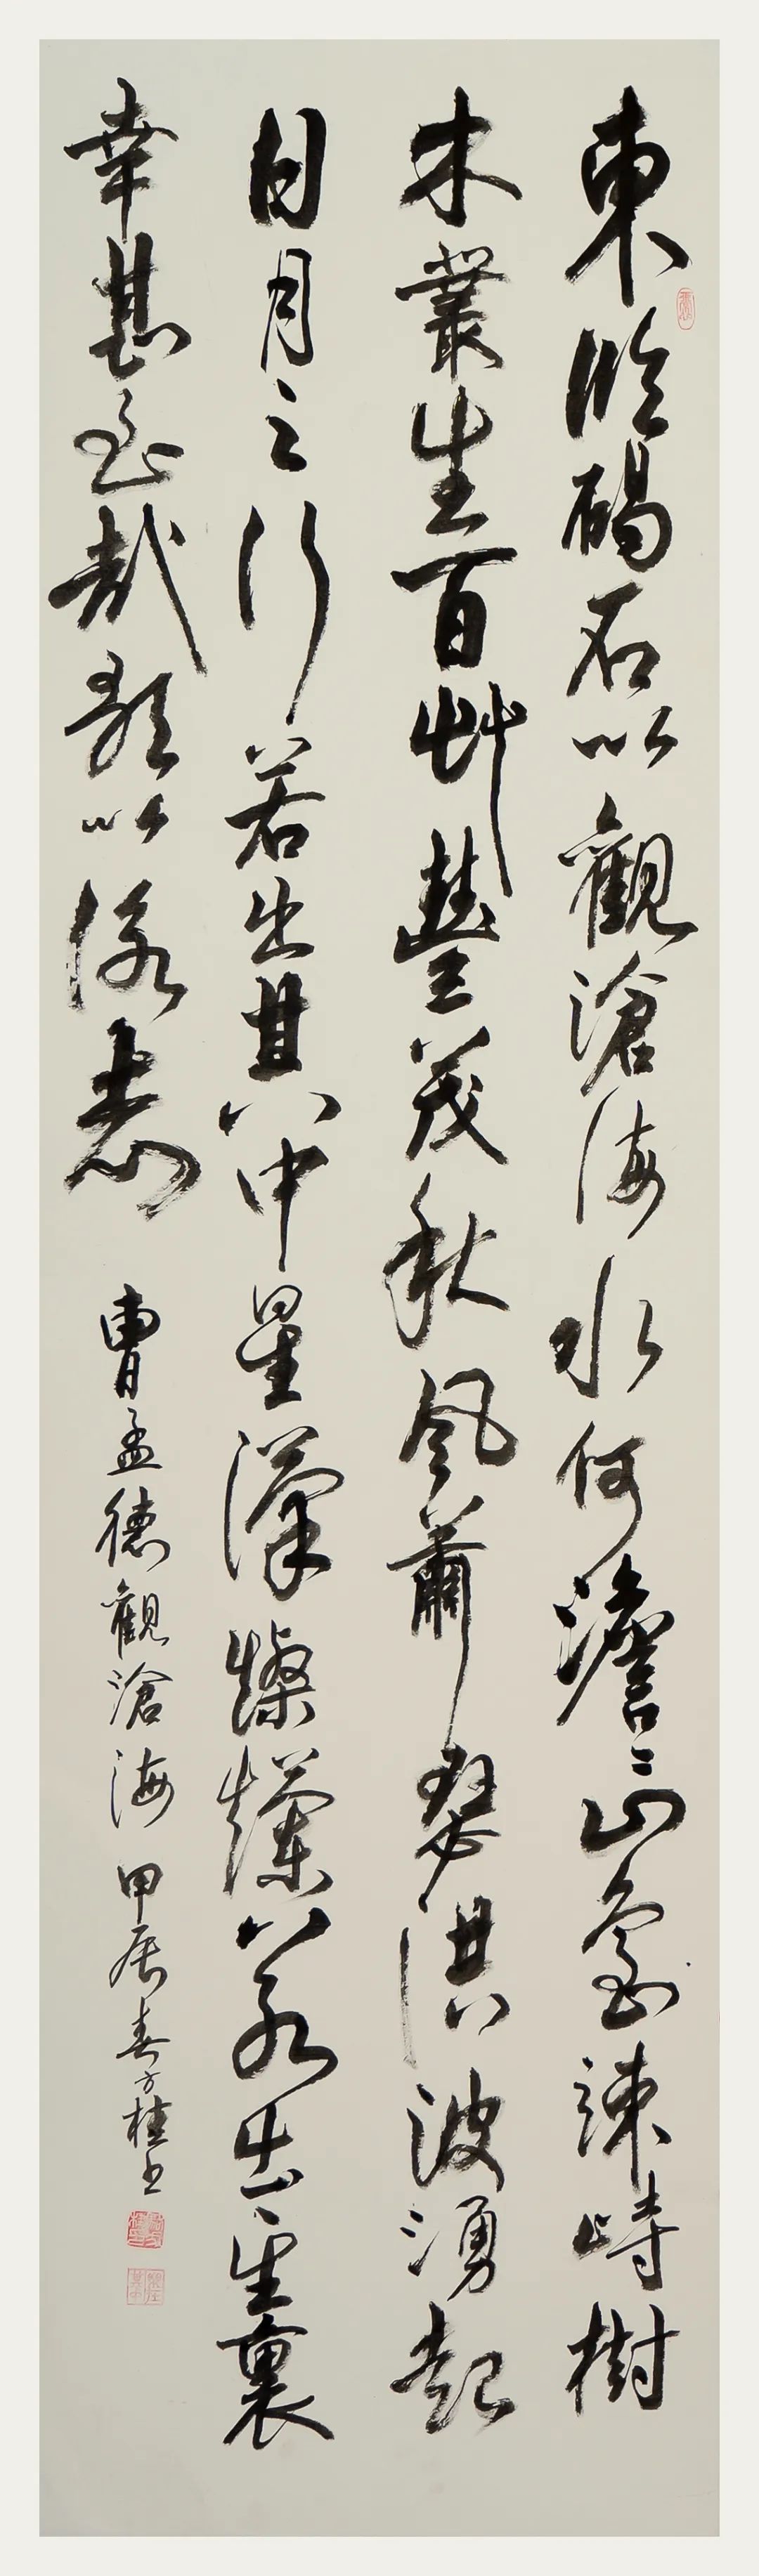 東臨碣石以觀滄海水何澹〻山島竦峙樹
木叢生百艸豐茂秋風蕭瑟洪波湧起
日月之行若出其中星漢燦爛若出其裏
幸甚至哉歌以詠志 曹孟德觀滄海 甲辰春方桂书